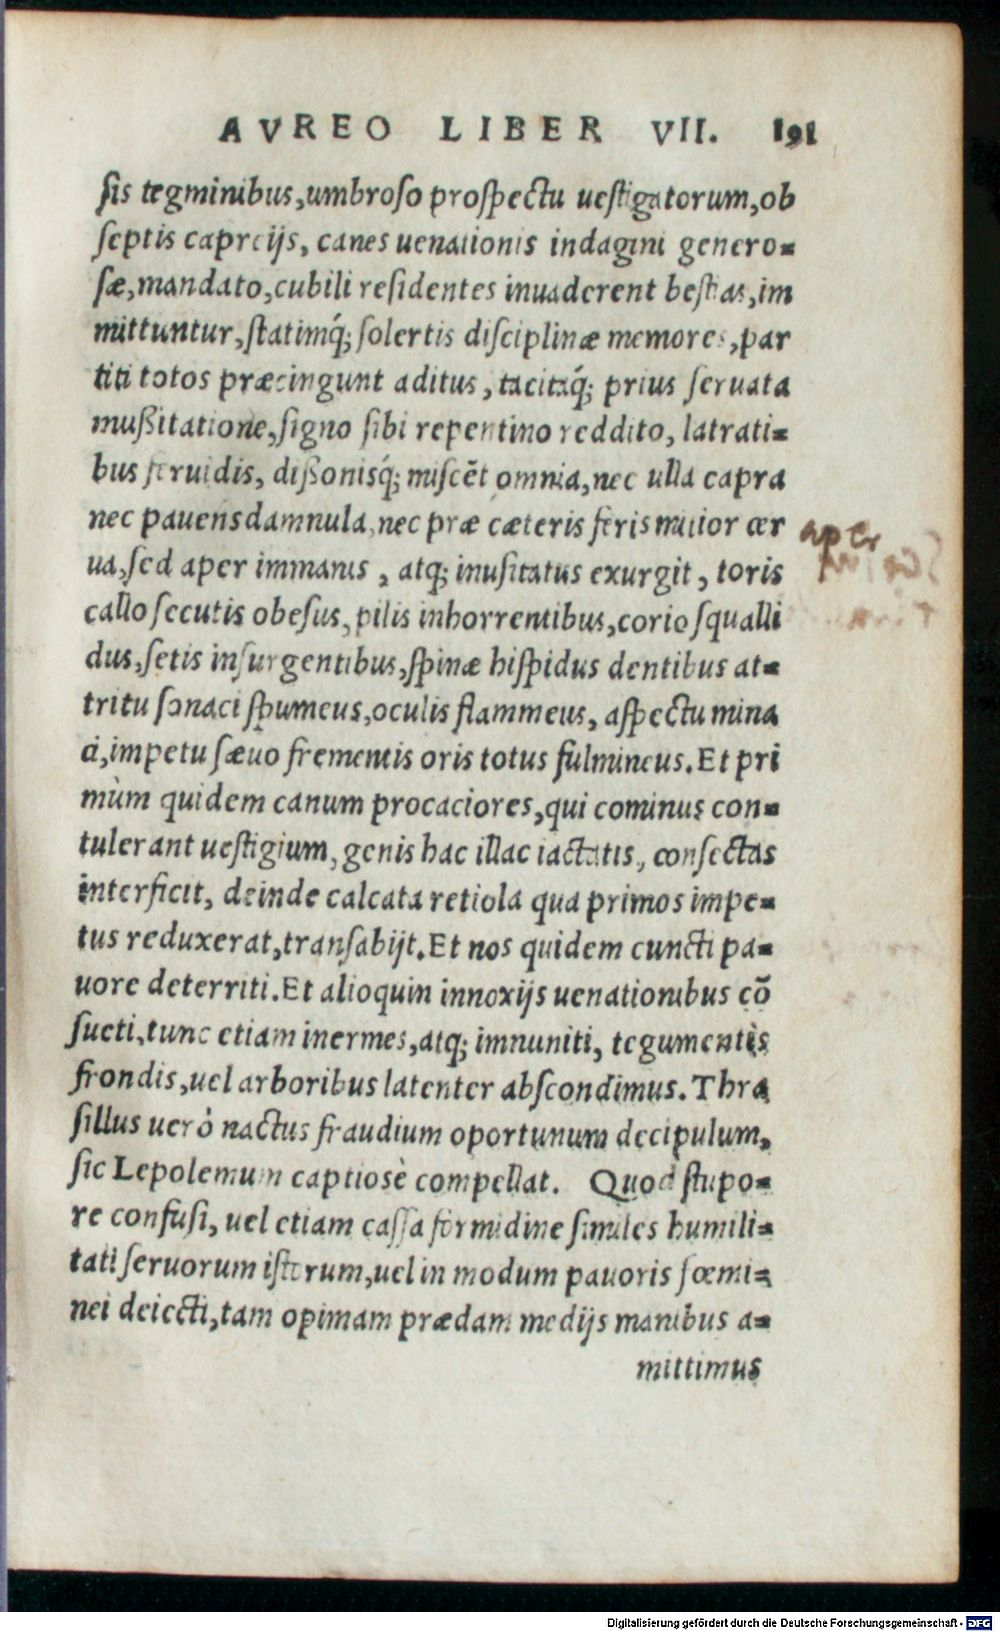 AVREO LIBER VII. 191
sis tegminibus, umbroso prospectu uestigatorum, ob
septis capreijs, canes uenationis indagini genero-
sæ, mandato, cubili residentes inuaderent bestias, im
mittuntur, statimq́; solertis disciplinæ memores, par
titi totos præcingunt aditus, tacitaq́; prius seruata
mußitatione, signo sibi repentino reddito, latrati-
bus feruidis, dißonisq́; miscẽt omnia, nec ulla capra
nec pauens damnula, nec præ cæteris feris mitior cer
ua, sed aper immanis, atq; inusitatus exurgit, toris
callo secutis obesus, pilis inhorrentibus, corio squalli
dus, setis insurgentibus, spinæ hispidus dentibus at-
tritu sonaci spumeus, oculis flammeus, aspectu mina
ci, impetu sæuo frementis oris totus fulmineus. Et pri
mùm quidem canum procaciores, qui cominus con-
tulerant uestigium, genis hac illac iactatis, consectas
interficit, deinde calcata retiola qua primos impe-
tus reduxerat, transabijt. Et nos quidem cuncti pa-
uore deterriti. Et alioquin innoxijs uenationibus cõ
sueti, tunc etiam inermes, atq; imnuniti, tegumentis
frondis, uel arboribus latenter abscondimus. Thra
sillus uerò nactus fraudium oportunum decipulum,
sic Lepolemum captiosè compellat. Quod stupo-
re confusi, uel etiam cassa formidine similes humili-
tati seruorum istorum, uel in modum pauoris fœmi-
nei deiecti, tam opimam prædam medijs manibus a-
mittimus
aper
Digitalisierung gefördert durch die Deutsche Forschungsgemeinschaft - DFG